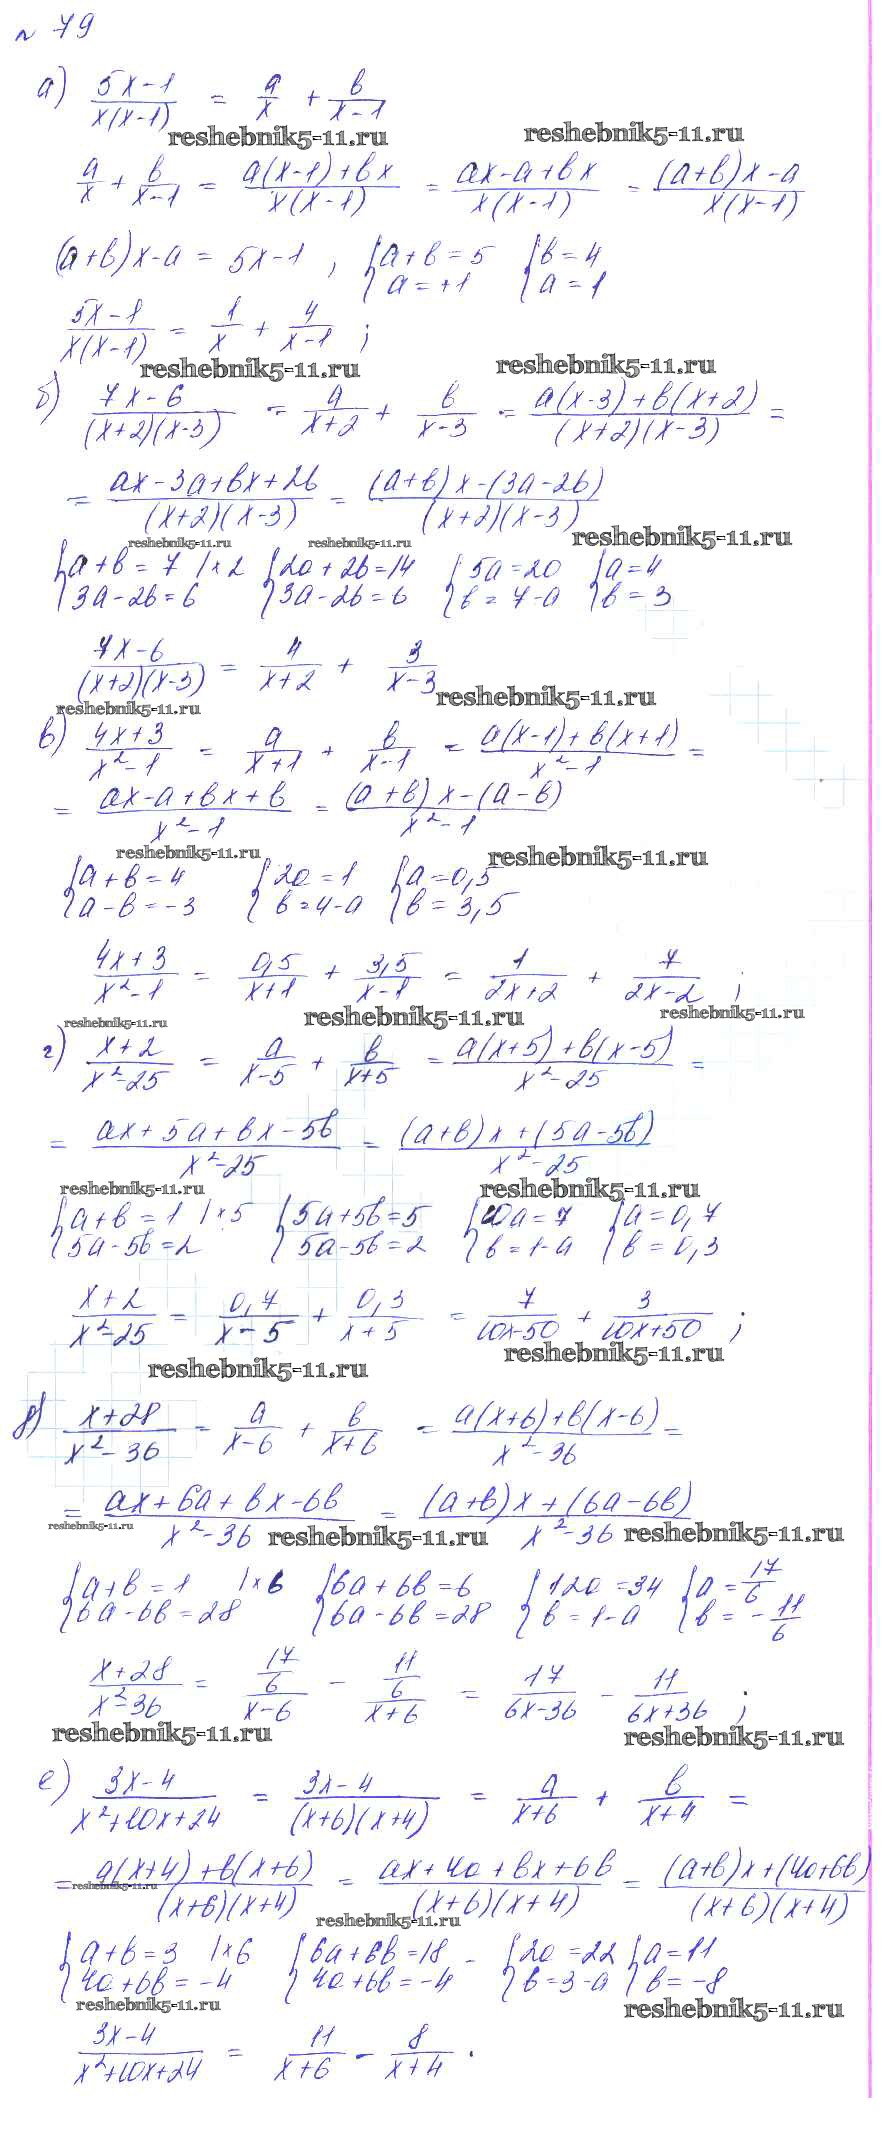 № 79
а) (5x-1)/(x(x-1)) = a/x + b/(x-1)
reshebnik5-11.ru reshebnik5-11.ru
a/x + b/(x-1) = (a(x-1)+bx)/(x(x-1)) = (ax-a+bx)/(x(x-1)) = ((a+b)x-a)/(x(x-1))
(a+b)x-a = 5x-1 , { a+b=5 a=+1 { b=4 a=1
(5x-1)/(x(x-1)) = 1/x + 4/(x-1) ;
reshebnik5-11.ru reshebnik5-11.ru
б) (7x-6)/((x+2)(x-3)) = a/(x+2) + b/(x-3) = (a(x-3)+b(x+2))/((x+2)(x-3)) =
= (ax-3a+bx+2b)/((x+2)(x-3)) = ((a+b)x-(3a-2b))/((x+2)(x-3))
reshebnik5-11.ru reshebnik5-11.ru reshebnik5-11.ru
{ a+b=7 |×2 3a-2b=6 { 2a+2b=14 3a-2b=6 { 5a=20 b=7-a { a=4 b=3
(7x-6)/((x+2)(x-3)) = 4/(x+2) + 3/(x-3)
reshebnik5-11.ru reshebnik5-11.ru
в) (4x+3)/(x²-1) = a/(x+1) + b/(x-1) = (a(x-1)+b(x+1))/(x²-1) =
= (ax-a+bx+b)/(x²-1) = ((a+b)x-(a-b))/(x²-1)
reshebnik5-11.ru reshebnik5-11.ru
{ a+b=4 a-b=-3 { 2a=1 b=4-a { a=0,5 b=3,5
(4x+3)/(x²-1) = 0,5/(x+1) + 3,5/(x-1) = 1/(2x+2) + 7/(2x-2) ;
reshebnik5-11.ru reshebnik5-11.ru reshebnik5-11.ru
г) (x+2)/(x²-25) = a/(x-5) + b/(x+5) = (a(x+5)+b(x-5))/(x²-25) =
= (ax+5a+bx-5b)/(x²-25) = ((a+b)x+(5a-5b))/(x²-25)
reshebnik5-11.ru reshebnik5-11.ru
{ a+b=1 |×5 5a-5b=2 { 5a+5b=5 5a-5b=2 { 10a=7 b=1-a { a=0,7 b=0,3
(x+2)/(x²-25) = 0,7/(x-5) + 0,3/(x+5) = 7/(10x-50) + 3/(10x+50) ;
reshebnik5-11.ru reshebnik5-11.ru
д) (x+28)/(x²-36) = a/(x-6) + b/(x+6) = (a(x+6)+b(x-6))/(x²-36) =
= (ax+6a+bx-6b)/(x²-36) = ((a+b)x+(6a-6b))/(x²-36)
reshebnik5-11.ru reshebnik5-11.ru reshebnik5-11.ru
{ a+b=1 |×6 6a-6b=28 { 6a+6b=6 6a-6b=28 { 12a=34 b=1-a { a=17/6 b=-11/6
(x+28)/(x²-36) = (17/6)/(x-6) - (11/6)/(x+6) = 17/(6x-36) - 11/(6x+36) ;
reshebnik5-11.ru reshebnik5-11.ru
е) (3x-4)/(x²+10x+24) = (3x-4)/((x+6)(x+4)) = a/(x+6) + b/(x+4) =
= (a(x+4)+b(x+6))/((x+6)(x+4)) = (ax+4a+bx+6b)/((x+6)(x+4)) = ((a+b)x+(4a+6b))/((x+6)(x+4))
reshebnik5-11.ru reshebnik5-11.ru
{ a+b=3 |×6 4a+6b=-4 { 6a+6b=18 4a+6b=-4 - { 2a=22 b=3-a { a=11 b=-8
reshebnik5-11.ru reshebnik5-11.ru
(3x-4)/(x²+10x+24) = 11/(x+6) - 8/(x+4) .